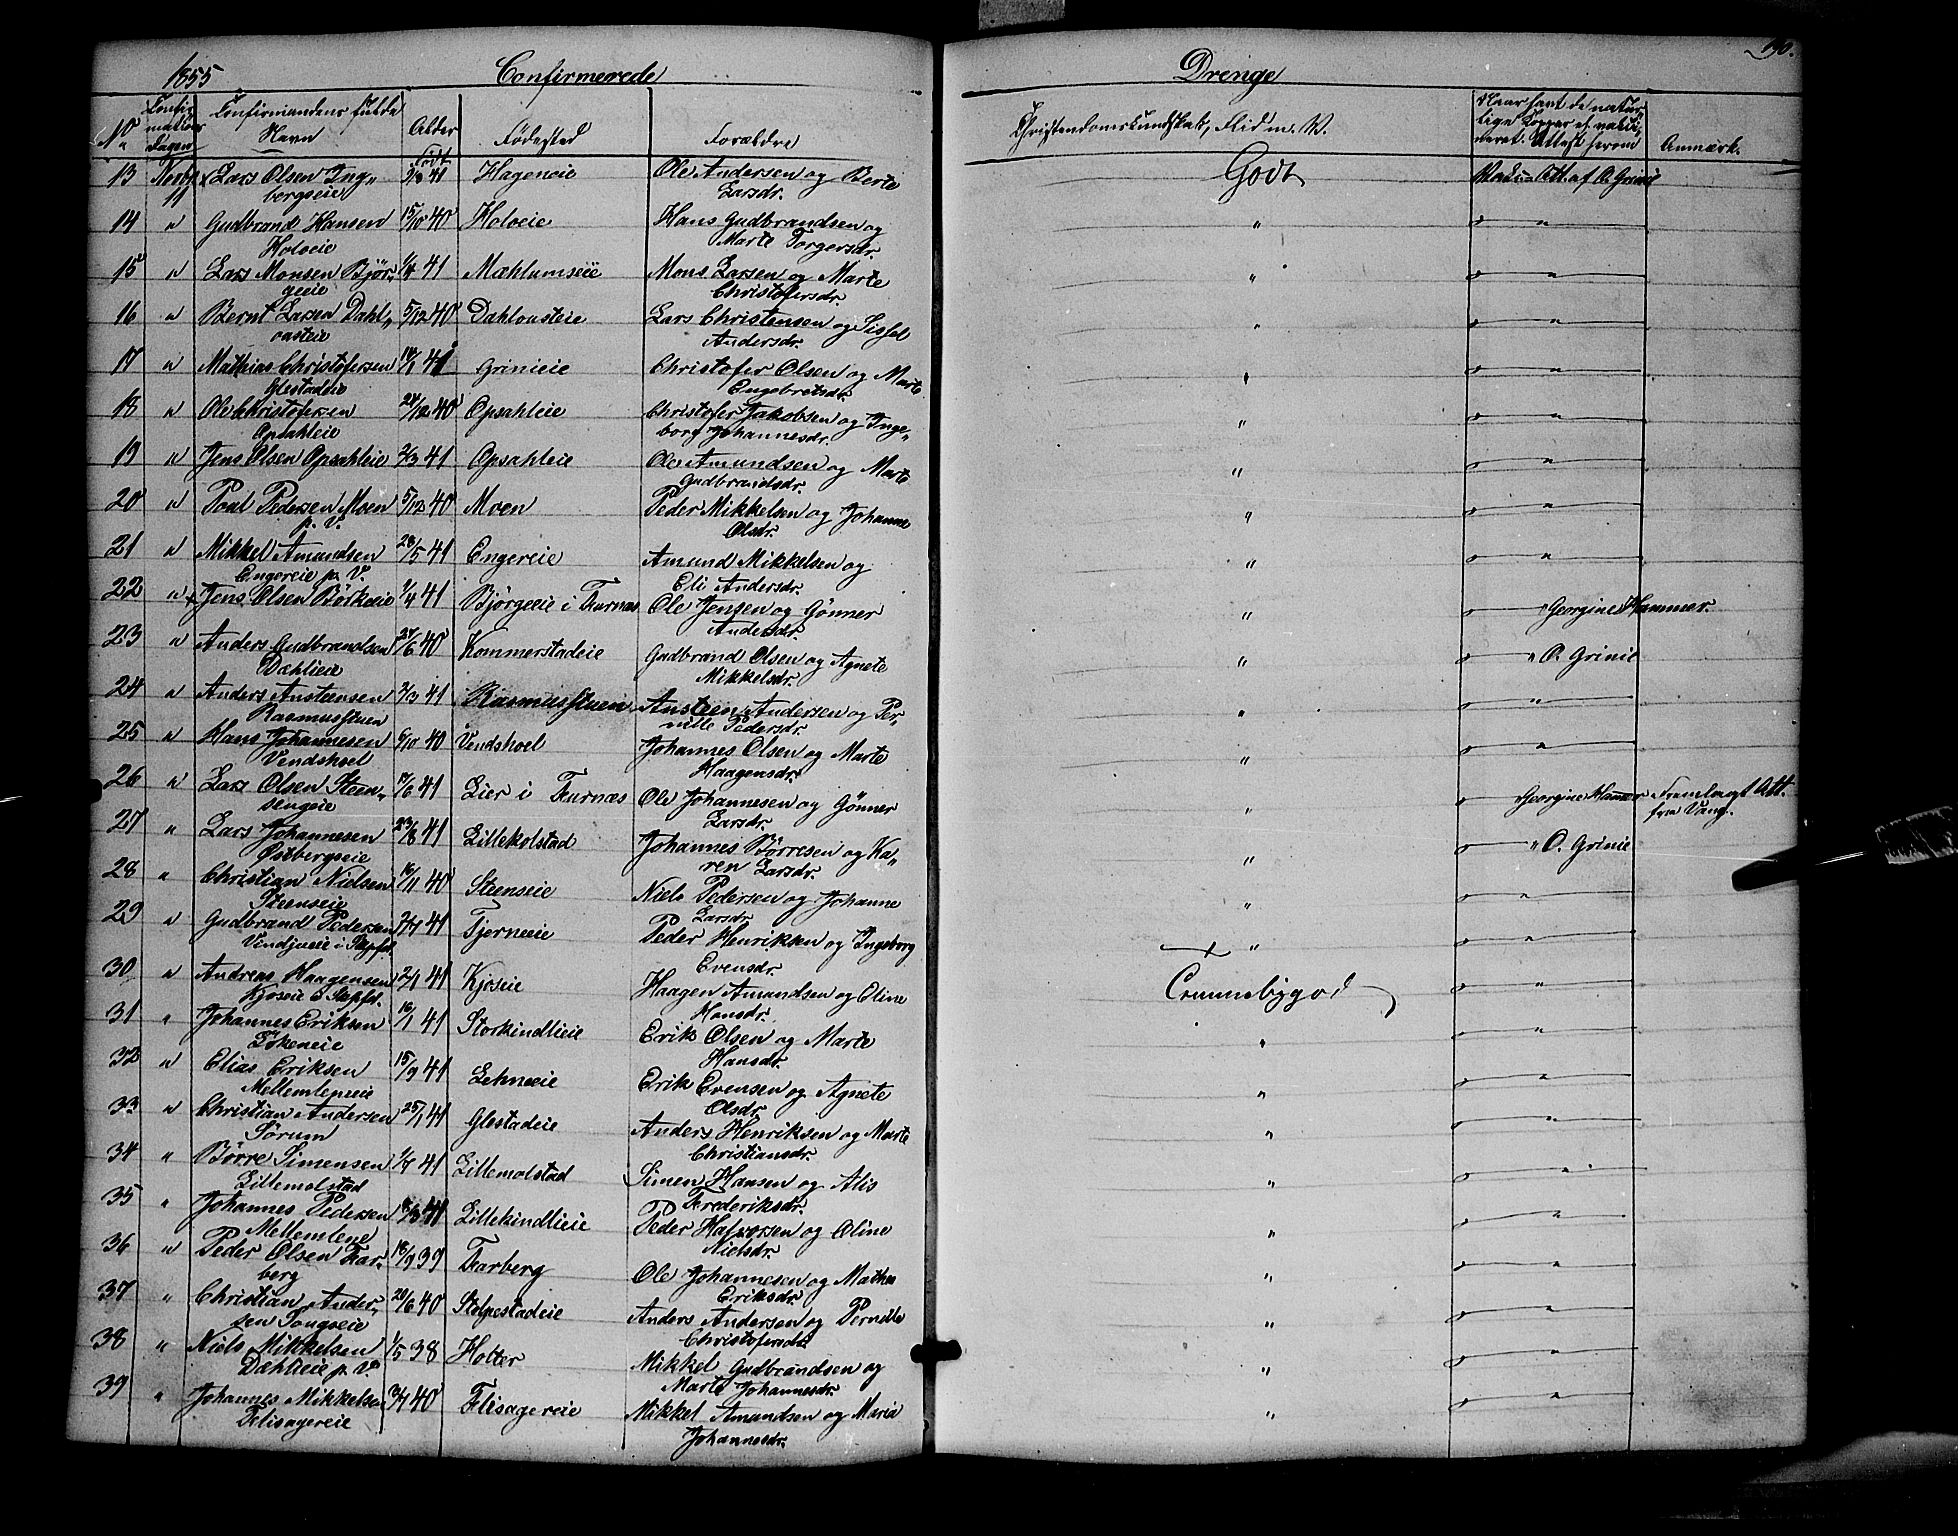 1855 Confirmerede Drenge 190.
No Confirmations Dagen Confirmandens fulde Navn Alder Født Fødested Forældre Christendomskundskab, Flid m. V. Naar havt de naturlige Kopper el. vaccineret. Attest herom Anmærk.
13 Lars Olsen Ing„ 41 Hageneie Ole Andersen og Berte Godt Vacc. Att. af O. Grinie
bergseie Larsdr.
14 " Gudbrand Hansen 15/10 40 Holoeie Hans Gudbrandsen og " "
Holoeie Marte Torgersdr.
15 " Lars Monsen Bjør- 41 Mæhlumseie Mons Larsen og Marte " "
geeie Christofersdr.
16 " Bernt Larsen Dahl„ 5/12 40 Lars Christensen og Sissel " "
Andersdr.
17 " Mathias Christofersen 41 Grinieie Christofer Olsen og Marte " "
Glestadeie Engebretsdr.
18 " Ole Christofersen 40 Opsahleie Christofer Jakobsen og Inge„ " "
Opsahleie borg Johannesdr.
19 " Jens Olsen Opsahleie 2/3 41 Opsahleie Ole Amundsen og Marte " "
Gudbrandsdr.
20 " Poul Pedersen Moen 5/12 40 Moen Peder Mikkelsen og Johanne " "
p. V. Olsdr.
21 " Mikkel Amundsen 28/5 41 Engereie Amund Mikkelsen og " "
Engereie p. V. Eli Andersdr.
22 " Jens Olsen Børkeeie 1/4 41 Bjørgeeie i Furnæs Ole Jensen og Gønner " " Georgine Hammer.
Andersdr.
23 " Anders Gudbrandsen 40 Kommerstadeie Gudbrand Olsen og Agnete " " O. Grinie
Dæhlieie Mikkelsdr.
24 " Anders Austensen 2/3 41 Rasmusstuen Austeen Andersen og Per„ " "
Rasmusstuen nille Pedersdr.
25 " Hans Johannesen 6/10 40 Vendshoel Johannes Olsen og Marte " "
Vendshoel Haagensdr.
26 " Lars Olsen Steen„ 41 Lier i Furnæs Ole Johannesen og Gønner " Georgine Hammer Fremlagt Att.
sengeie Larsdr. fra Vang.
27 " Lars Johannesen 23/8 41 Lillekolstad Johannes Børresen og Ka„ " " O. Grinie
Østbergseie ren Larsdr.
28 " Christian Nielsen 16/11 40 Steenseie Niels Pedersen og Johanne " "
Steenseie Larsdr.
29 " Gudbrand Pedersen 41 Tjerneeie Peder Henriksen og Ingeborg " "
Evensdr.
30 " Andreas Haagensen 2/1 41 Kjoseie Haagen Amundsen og Eline "
Kjoseie Hansdr.
31 " Johannes Eriksen 16/1 41 Storkindlieie Erik Olsen og Marte " "
Løkeneie Hansdr.
32 " Elias Eriksen 15/9 41 Lehneeie Erik Evensen og Agnete " "
Olsdr.
33 " Christian Andersen 25/1 41 Glestadeie Anders Henriksen og Marte " "
Sørum Christiansdr.
34 " Børre Simensen 1/7 41 Lillemolstad Simen Hansen og Alis " "
Lillemolstad Frederiksdr.
35 " Johannes Pedersen 41 Lillekindlieie Peder Halvorsen og Oline " "
Mellemlene Nielsdr.
36 " Peder Olsen Far- 18/9 39 Farberg Ole Johannesen og Mathea " "
berg Eriksdr.
37 " Christian Ander„ 20/6 40 Stolpestadeie Anders Andersen og Pernille " "
sen Christofersdr.
38 " Niels Mikkelsen 1/5 38 Holter Mikkel Gudbrandsen og " "
Dahleie p. V. Marte Johannesdr.
39 " Johannes Mikkelsen 40 Flisagereie Mikkel Amundsen og Maria " "
Flisagereie Johannesdr.